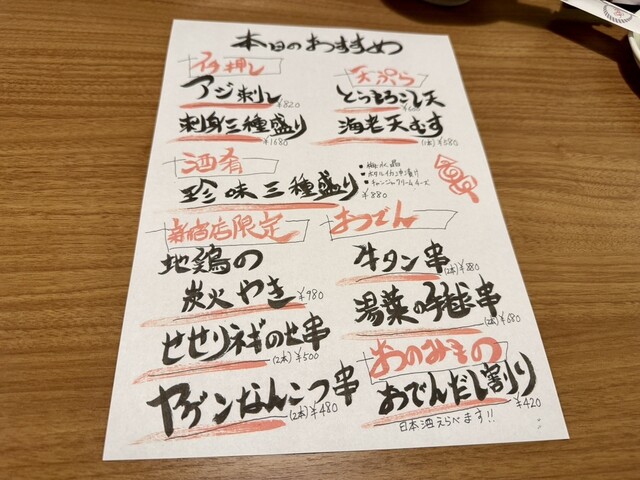 本日のおすすめ
イチ押し
アジ刺し ¥820
刺身三種盛り ¥1680
天ぷら
とうもろこし天
海老天むす (2本) ¥580
酒肴
珍味三種盛り ¥880
・梅水晶
・ホタルイカ沖漬け
・チャンジャクリームチーズ
新宿店限定
地鶏の
炭火やき ¥980
せせりネギのせ串 (2本) ¥500
ヤゲンなんこつ串 (2本) ¥480
おでん
牛タン串
湯葉の手毬串 (2本) ¥680
おのみもの
おでんだし割り ¥420
日本酒えらべます!!